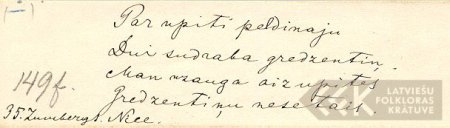 (–)
Par upiti peldinaju
Divi sudraba gredzentiņ.
Man uzauga aiz upites
Gredzentiņu nesetais.
149f.
35. Zumbergs. Nīce.
LATVIEŠU
FOLKLORAS
KRĀTUVE